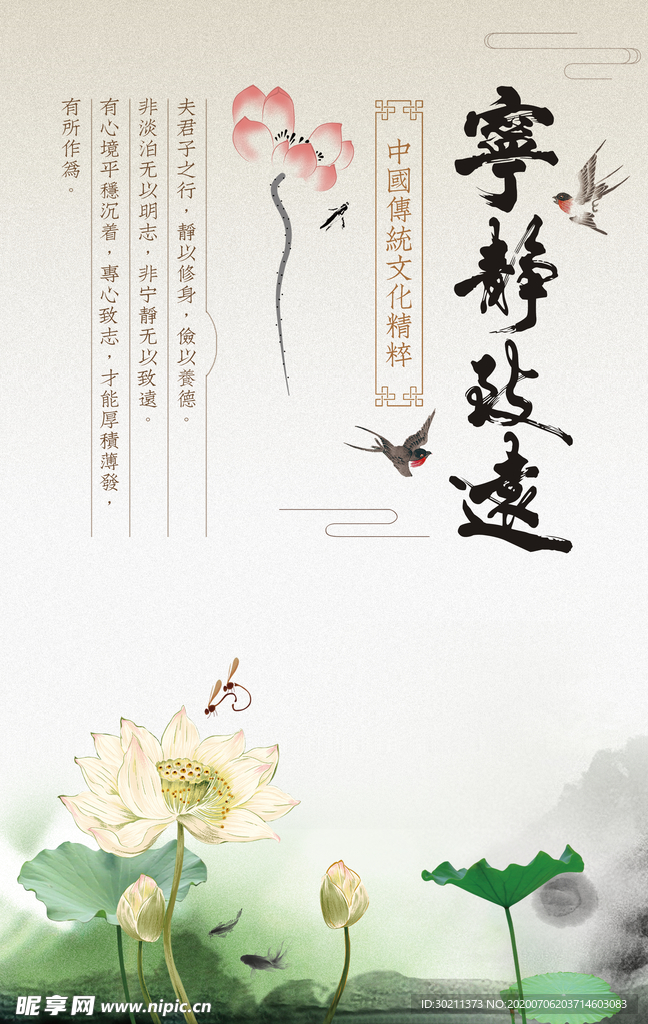 寧靜致遠
中國傳統文化精粹
夫君子之行，靜以修身，儉以養德。
非淡泊无以明志，非宁靜无以致遠。
有心境平穩沉着，專心致志，才能厚積薄發，
有所作為。
昵享网 www.nipic.cn
ID:30211373 NO:20200706203714603083